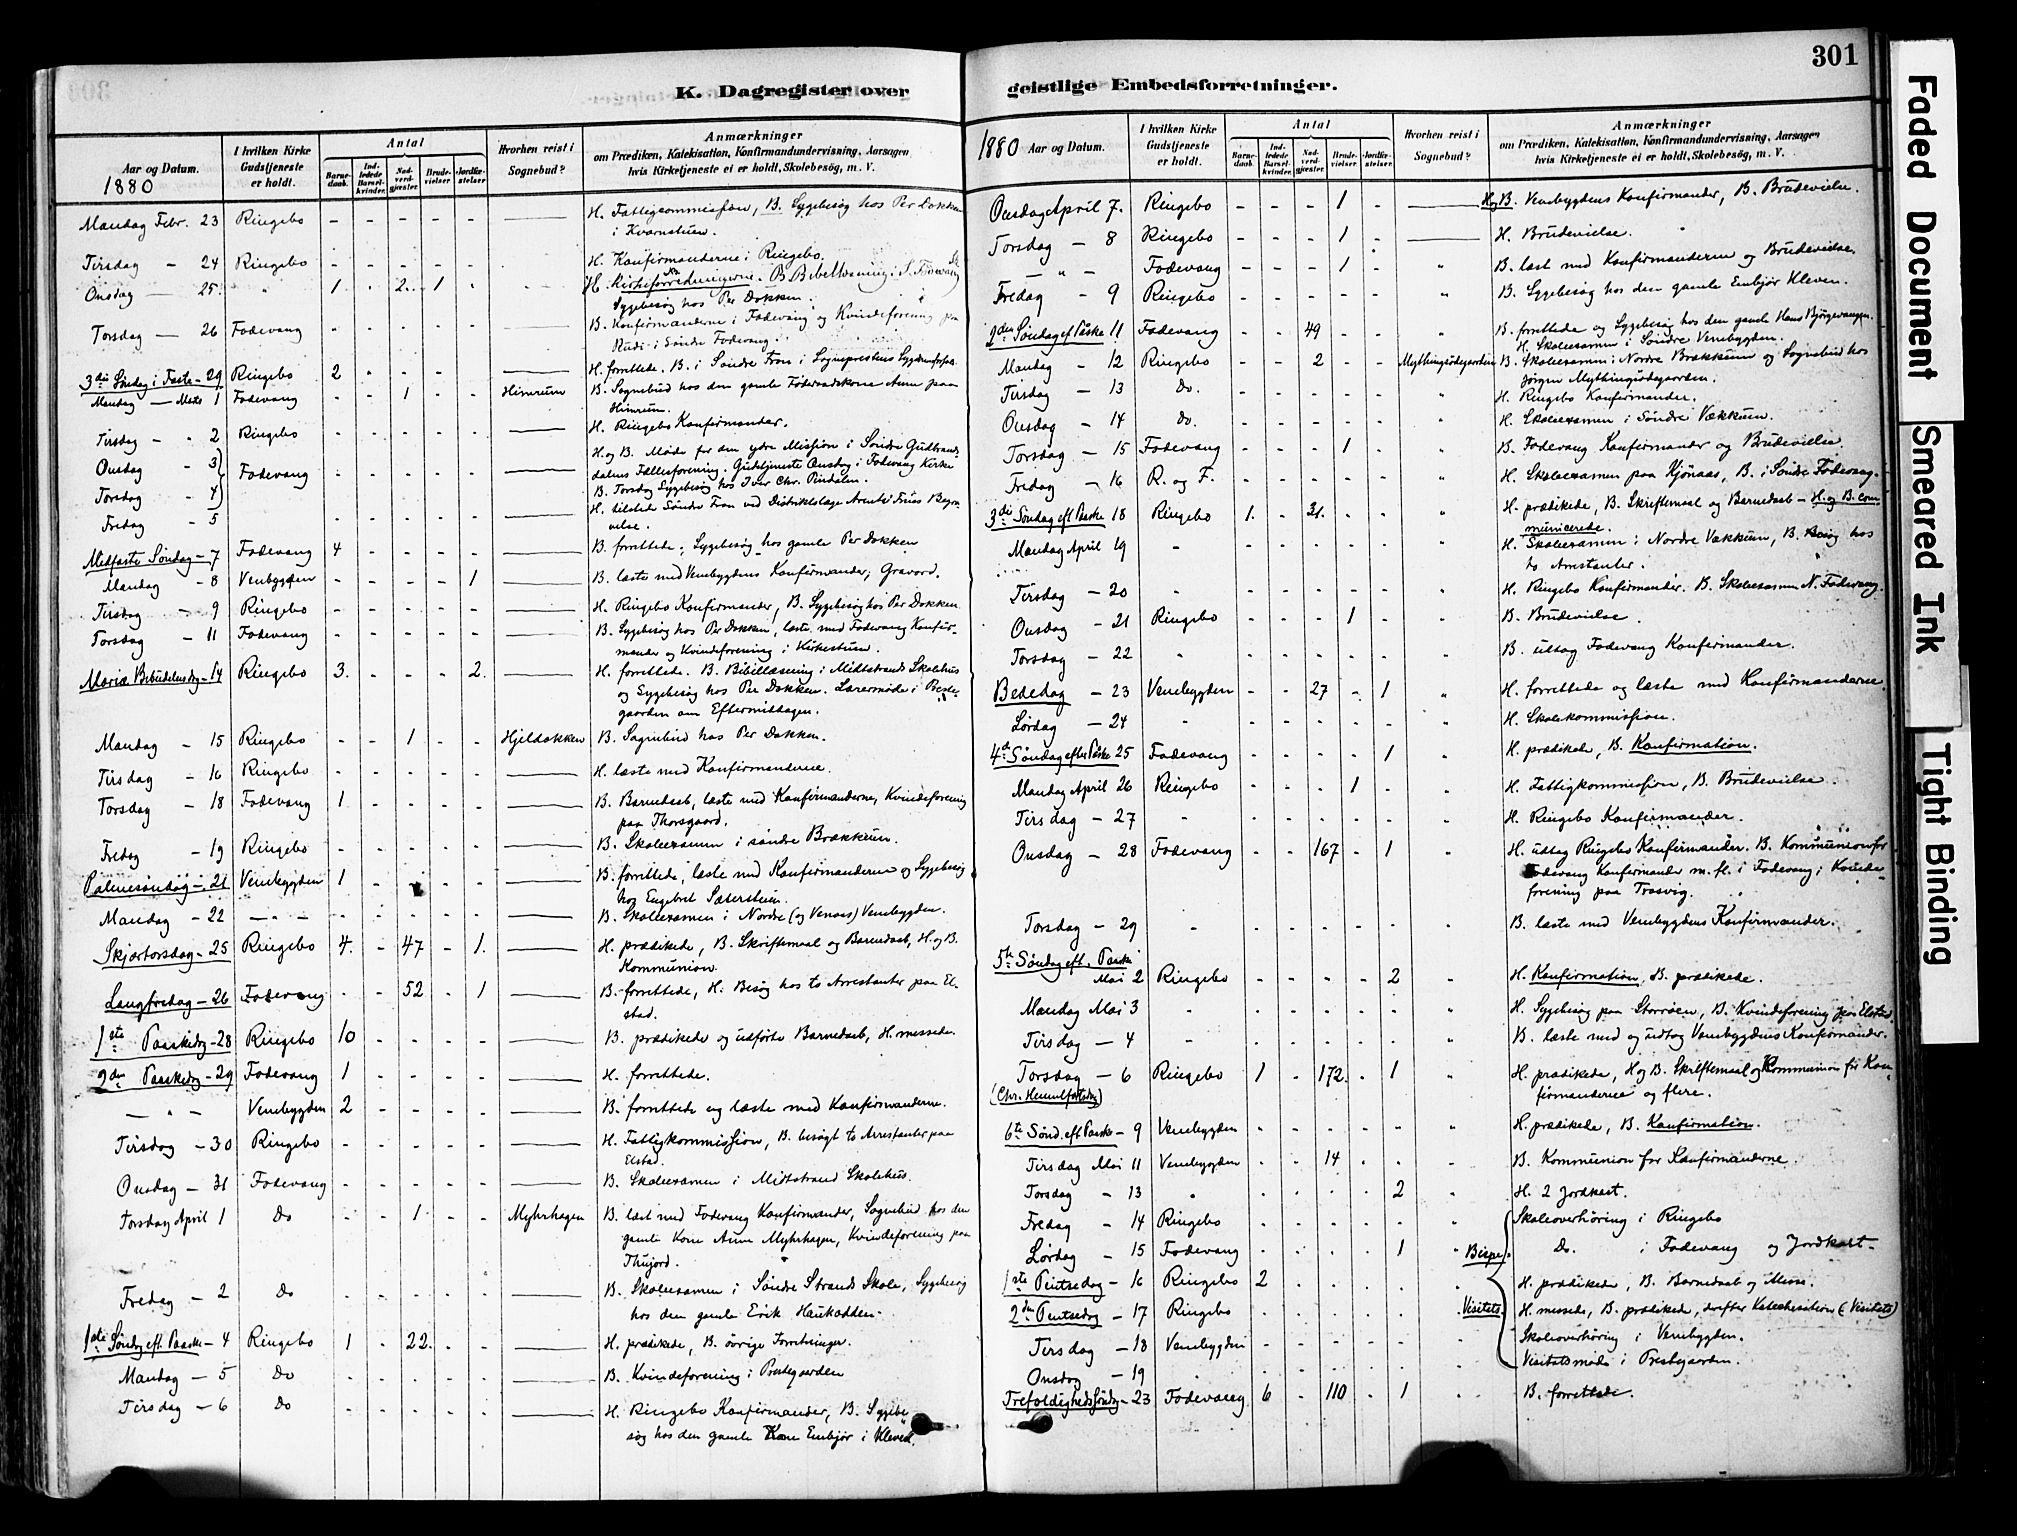 301
K. Dagregister over
geistlige Embedsforretninger.
Aar og Datum.
1880
I hvilken Kirke Gudstjeneste er holdt.
Antal
Barnedaab.
Indledede Barselkvinder.
Nadverdgjæster.
Brudevielser.
Jordfæstelser.
Hvorhen reist i Sognebud?
Anmærkninger
om Prædiken, Katekisation, Konfirmandundervisning, Aarsagen
hvis Kirketjeneste ei er holdt, Skolebesøg, m. V.
Mandag Febr. 23 Ringebo - - - - - H. Fattigcommission, B. Sygebesøg hos Per Dokken
i Kvarnstuen.
Tirsdag - 24 Ringebo - - - - - H. Konfirmanderne i Ringebo.
Onsdag - 25. " 1 - 2. 1 - H. Kirkeforretningerne. B. Bibellæsning i S. Fodevang
Sygebesøg hos Per Dokken.
Torsdag - 26 Fodevang - - - - - B. Konfirmanderne i Fodevang og Kvindeforening paa
Rudi i Søndre Fodevang.
3die Søndag i Faste - 29 Ringebo 2 - - - - H. forrettede. B. i Søndre Fron i Sogneprestens
Mandag - Marts 1 Fodevang - - 1 - - Himrum B. Sognebud hos den gamle Føderaadskone Anne paa
Himrum.
Tirsdag - " 2 Ringebo - - - - - H. Ringebo Konfirmander.
Onsdag - 3 Fodevang - - - - - H. og B. Møde for den ydre Mission i Søndre Gudbrands
dalens Fællesforening. Gudstjeneste Onsdag i Fodevang Kirke
Torsdag - 4 B. Torsdag Sygebesøg hos Iver Chr. Rindalen.
Fredag - 5 - - - - - H. tilstede Søndre Fron ved Distriktslæge Arentz' Frues Begra
velse.
Midfaste Søndag - 7 Fodevang 4 - - - - B. forrettede; Sygebesøg hos gamle Per Dokken
Mandag - 8 Venebygden - - - - 1 B. læste med Venebygdens Konfirmander; Gravord.
Tirsdag - 9 Ringebo - - - - - H. Ringebo Konfirmander, B. Sygebesøg hos Per Dokken.
Torsdag - 11 Fodevang - - - - - B. Sygebesøg hos Per Dokken, læste med Fodevang Konfir-
mander og Kvindeforening i Kirkestuen.
Mariæ Bebudelsesdag - 14 Ringebo 3. - - - 2. H. forrettede. B. Bibellæsning i Midtstrands Skolehus
og Sygebesøg hos Per Dokken. Læremøde i Preste-
gaarden om Eftermiddagen.
Mandag - 15 Ringebo - - 1 - - Hjeldokken B. Sognebud hos Per Dokken.
Tirsdag - 16 Ringebo - - - - - H. læste med Konfirmanderne.
Torsdag - 18 Fodevang 1. - - - - B. Barnedaab, læste med Konfirmanderne, Kvindeforening
paa Thorsgaard.
Fredag - 19 Ringebo - - - - - B. Skoleexamen i søndre Brækkum.
Palmesøndag - 21 Venebygden 1 - - - - B. forrettede, læste med Konfirmanderne og Sygebesøg
hos Engebret Sæterstuen.
Mandag - 22 - " - - - - - - B. Skoleexamen i Nordre (og Venaas) Venebygden.
Skjærtorsdag - 25 Ringebo 4. - 47 - 1. H. prædikede, B. Skriftemaal og Barnedaab, H. og B.
Kommunion.
Langfredag - 26 Fodevang - - 52 - 1 B. forrettede, H. Besøg hos to Arrestanter paa El-
stad.
1ste Paaskedag - 28 Ringebo 10 - - - - B. prædikede og udførte Barnedaab, H. messede.
2den Paaskedag - 29 Fodevang 1 - - - - H. forrettede.
- " - Venebygden 2 - - - - B. forrettede og læste med Konfirmanderne.
Tirsdag - 30 Ringebo - - - - - H. Fattigkommission, B. besøgt to Arrestanter paa
Elstad.
Onsdag - 31 Fodevang - - - - - B. Skoleexamen i Midtstrand Skolehus.
Torsdag April 1 Do - - 1 - - Myhrhagen B. læst med Fodevang Konfirmander, Sognebud hos den
gamle Kone Anne Myhrhagen, Kvindeforening paa
Thujord.
Fredag - 2 Do - - - - - B. Skoleexamen i Søndre Strands Skole, Sygebesøg
hos den gamle Erik Haukodden.
1ste Søndag eft. Paaske - 4 Ringebo 1 - 22. - - H. prædikede, B. øvrige Forretninger.
Mandag - 5 Do - - - - - B. Kvindeforening i Prestegaarden
Tirsdag - 6 Do - - - - - H. Ringebo Konfirmander, B. Sygebe-
søg hos den gamle Kone Embjør i Kleven.
1880 Aar og Datum.
I hvilken Kirke Gudstjeneste er holdt.
Antal
Barnedaab.
Indledede Barselkvinder.
Nadverdgjæster.
Brudevielser.
Jordfæstelser.
Hvorhen reist i Sognebud?
Anmærkninger
om Prædiken, Katekisation, Konfirmandundervisning, Aarsagen
hvis Kirketjeneste ei er holdt, Skolebesøg, m. V.
Onsdag April 7. Ringebo - - - 1 - H. og B. Venebygdens Konfirmander, B. Brudevielse.
Torsdag - 8 Ringebo - - - 1 - H. Brudevielse.
- " - Fodevang - - - 1 - " B. læst med Konfirmanderne og Brudevielse.
Fredag - 9 Ringebo - - - - - " B. Sygebesøg hos den gamle Embjør Kleven.
2den Søndag ef. Påske 11 Fodevang - - 49 - - " B. forrettede og Sygebesøg hos den gamle Hans Bjørgevangen.
H. Skoleexamen i Søndre Venebygden.
Mandag - 12 Ringebo - - 2 - - Mythingsødegaarden B. Skoleexamen i Nordre Brækkum og Sognebud hos
Jørgen Mythingsødegaarden.
Tirsdag - 13 Do. - - - - - " H. Ringebo Konfirmander.
Onsdag - 14 Do. - - - - - " H. Skoleexamen i Søndre Vækkum.
Torsdag - 15 Fodevang - - - 1 - " B. Fodevang Konfirmander og Brudevielse.
Fredag - 16 R. og F. - - - - - " H. Skoleexamen paa Kjønaas, B. i Søndre Fodevang.
3die Søndag eft Paaske 18 Ringebo 1. - 31. - - " H. prædikede, B. Skriftemaal og Barnedaab - H. og B. com
municerede.
Mandag April 19 " - - - - - " H. Skoleexamen i Nordre Vækkum, B. Besøg hos
to Arrestanter.
Tirsdag - 20 " - - - - - " H. Ringebo Konfirmander. B. Skoleexamen N. Fodevang.
Onsdag - 21 Ringebo - - - 1 - " B. Brudevielse.
Torsdag - 22 " - - - - - " B. udtog Fodevang Konfirmander.
Bededag - 23 Venebygden - - 27 - 1 " H. forrettede og læste med Konfirmanderne.
Lørdag - 24 " - - - - - " H. Skolekommission.
4de Søndag efter Påske 25 Fodevang - - - - 1 " H. prædikede, B. Konfirmation.
Mandag April 26 Ringebo - - - 1 - " H. Fattigkommission, B. Brudevielse.
Tirsdag - 27 " - - - - - " H. Ringebo Konfirmander.
Onsdag - 28 Fodevang - - 167 - 1 " H. udtog Ringebo Konfirmander. B. Kommunion for
Fodevang Konfirmander m. fl. i Fodevang; Kvinde-
forening paa Trosvig.
Torsdag - 29 " - - - - - " B. læste med Venebygdens Konfirmander.
5te Søndag eft. Paaske
Mai 2 Ringebo - - - - 2 " H. Konfirmation, B. prædikede.
Mandag Mai 3 " - - - - - " H. Sygebesøg paa Storrøen, B. Kvindeforening paa Elstad.
Tirsdag - 4 " - - - - - " B. læste med og udtog Venebygdens Konfirmander.
Torsdag - 6 Ringebo 1 - 172. - 1 " H. prædikede, H og B. Skriftemaal og Kommunion for Kon
(Chr. Himmelfartsdag) firmanderne og flere.
6te Sønd. eft Paaske - 9 Venebygden - - - - - " H. prædikede, B. Konfirmation.
Tirsdag Mai 11 Venebygden - - 14 - - " B. Kommunion for Konfirmanderne.
Torsdag - 13 " - - - - 2 " H. 2 Jordkast.
Fredag - 14 Ringebo - - - - - " Skoleoverhøring i Ringebo
Lørdag - 15 Fodevang - - - - 1 " Bispe Do. i Fodevang og Jordkast
1ste Pintsedag - 16 Ringebo 2 - - - - H. prædikede, B. Barnedaab og Messe.
2den Pintsedag - 17 Ringebo - - - - - Visitats. H. messede, B. prædikede, derefter Katechisation (: Visitats)
Tirsdag - 18 Venebygden - - - - - Skoleoverhøring i Venebygden.
Onsdag - 19 - - - - - - Visitatsmøde i Prestegaarden.
Trefoldighedssøndag - 23 Fodevang 6 - 110 - 1 " B. forrettede.
Faded Document
Smeared Ink
Tight Binding